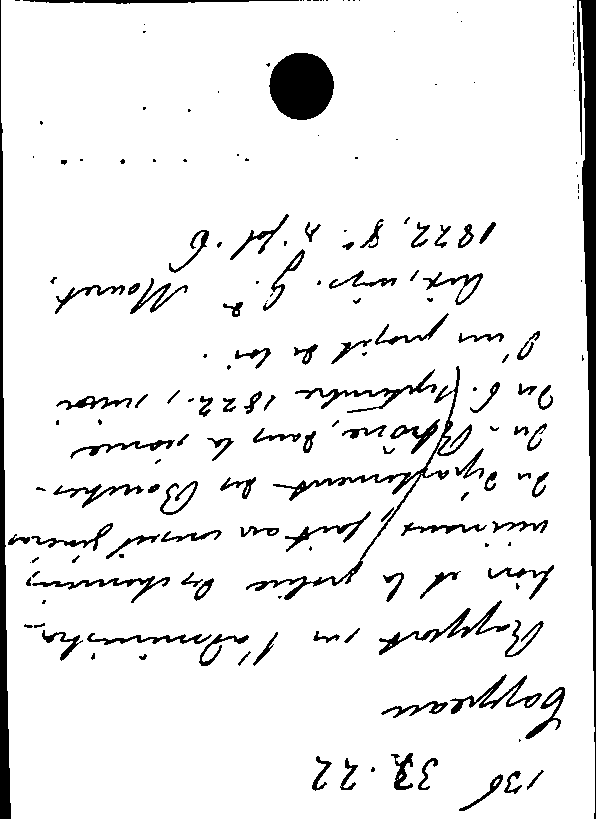 136 33.22
Cappeau
Rapport sur l'administra-
tion et la police des chemins
vicinaux, fait au conseil général
du département des Bouches-
du-Rhône, dans la séance
du 6 septembre 1822, suivi
d'un projet de loi.
Aix, impr. G. Mouret,
1822, 8°.